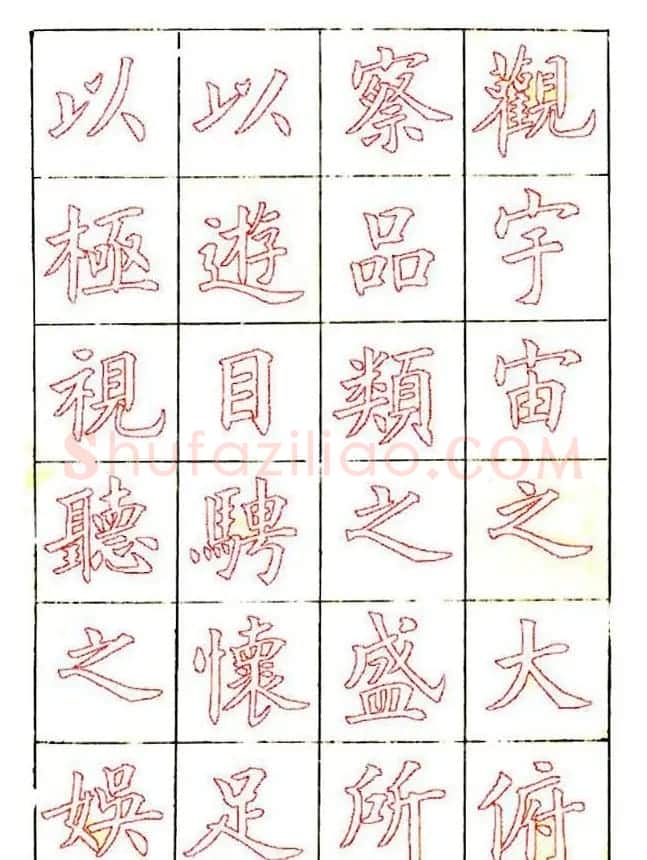 觀宇宙之大俯
察品類之盛所
以遊目騁懷足
以極視聽之娛
Shufaziliao.COM